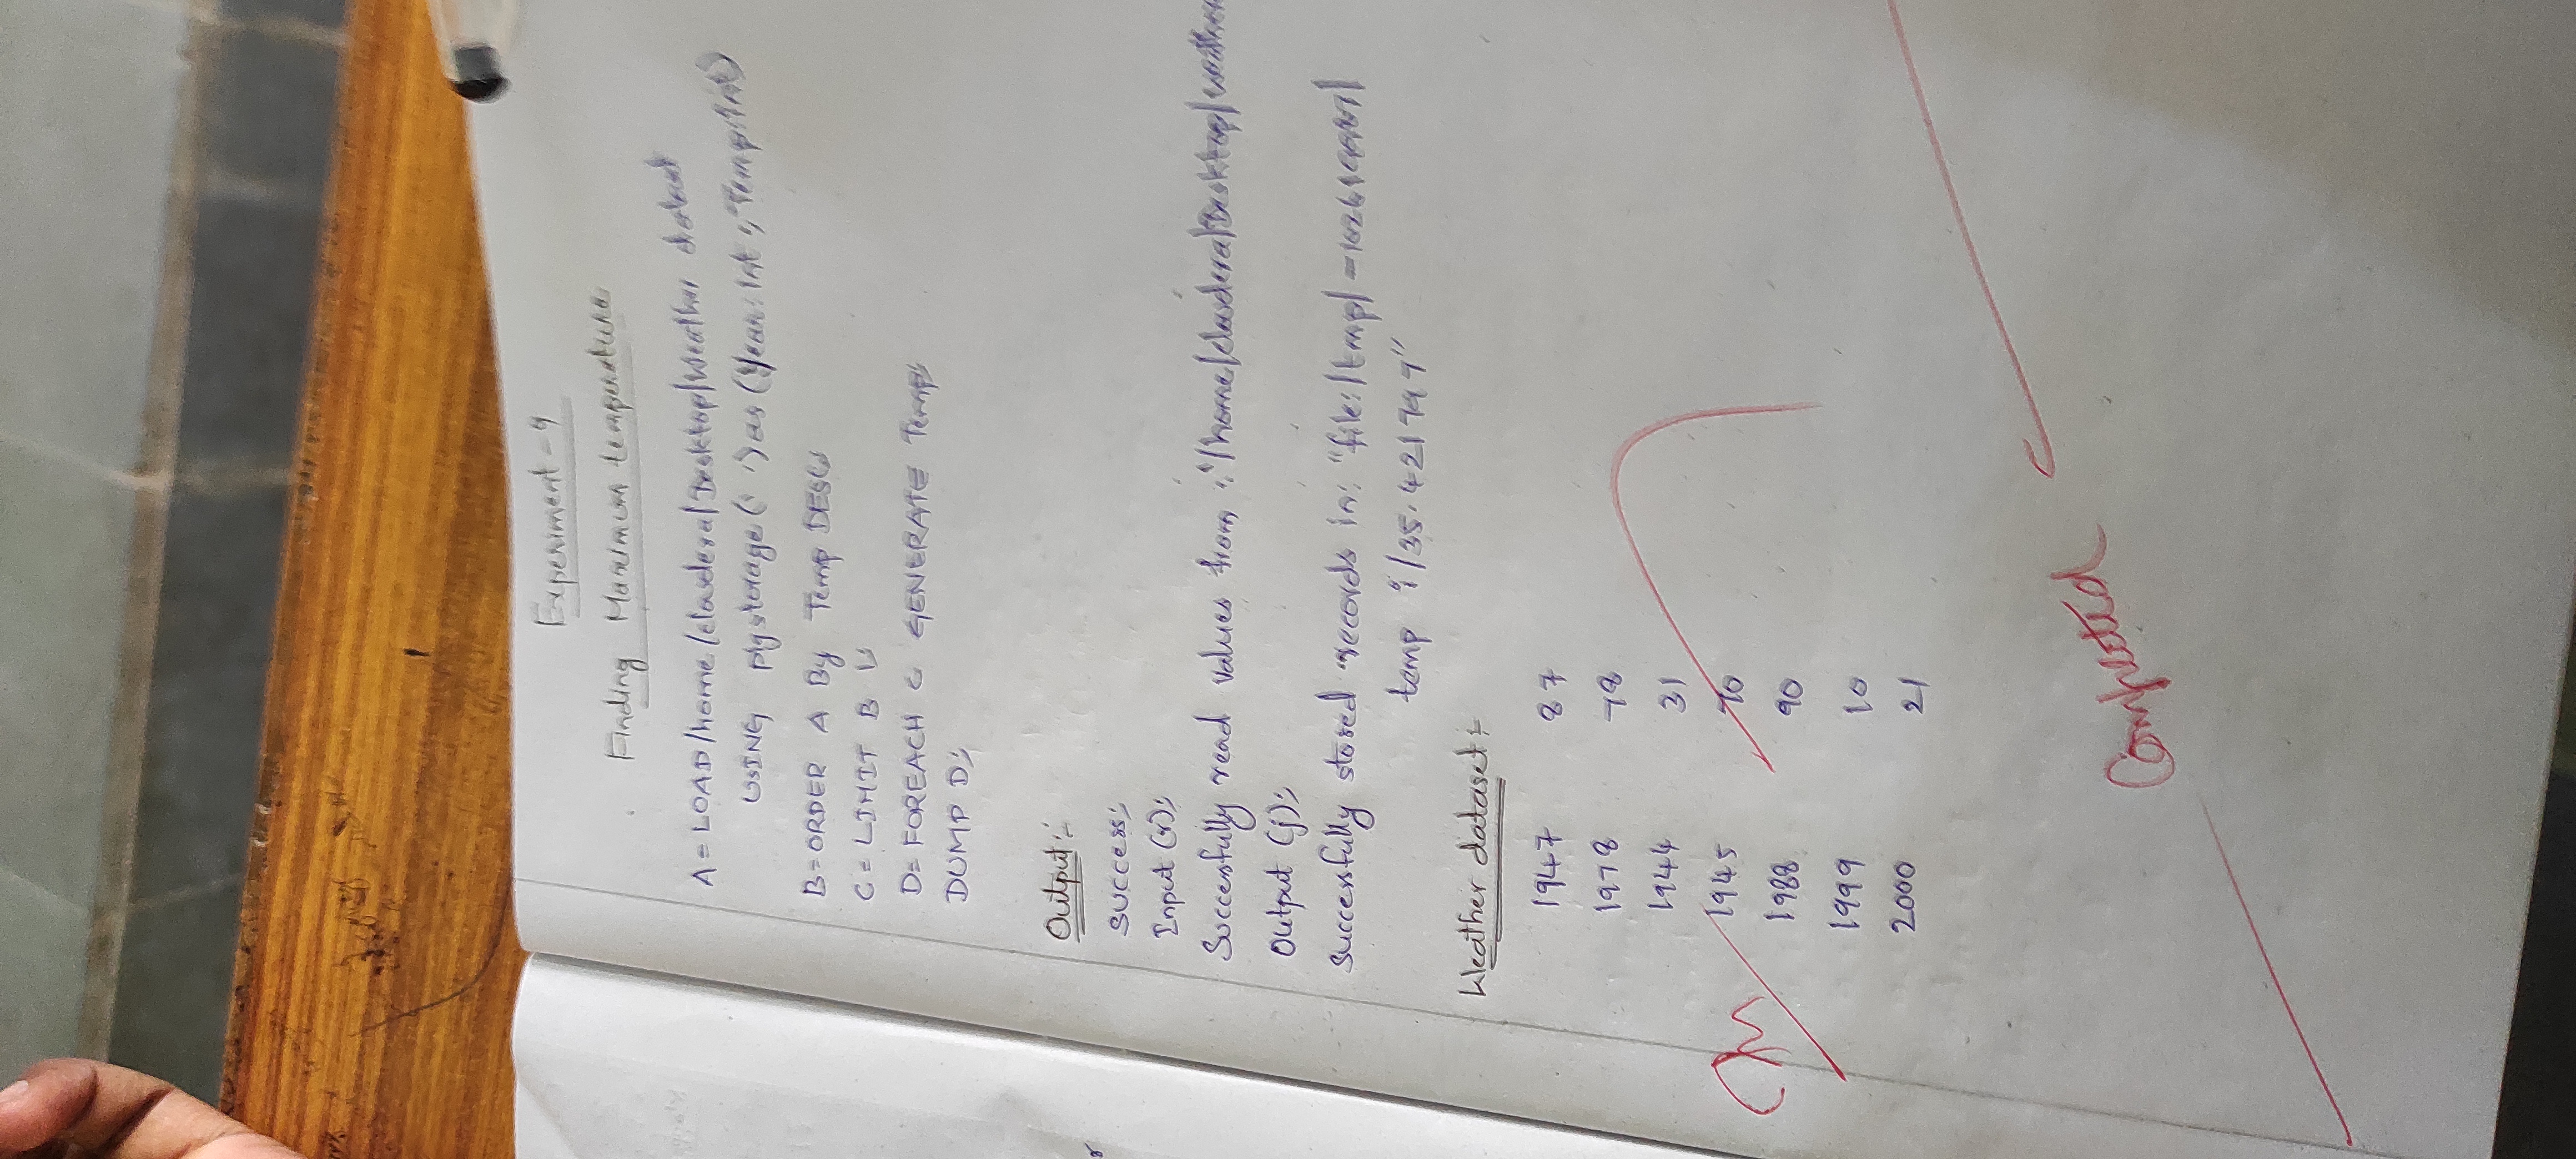 Experiment - 9
Finding Maximum temperature
A = LOAD /home/cloudera/Desktop/Weather dataset
USING pigstorage (' ') as (Year: Int , Temp: Int)
B = ORDER A By Temp DESC;
C = LIMIT B 1;
D = FOREACH C GENERATE Temp;
DUMP D;
Output:-
Success;
Input (r);
Successfully read values from : "/home/cloudera/Desktop/weather
Output (j);
Successfully stored records in: "file:/tmp/
temp
Weather dataset:-
1947 87
1978 78
1944 31
1945 70
1988 90
1999 10
2000 21
Completed